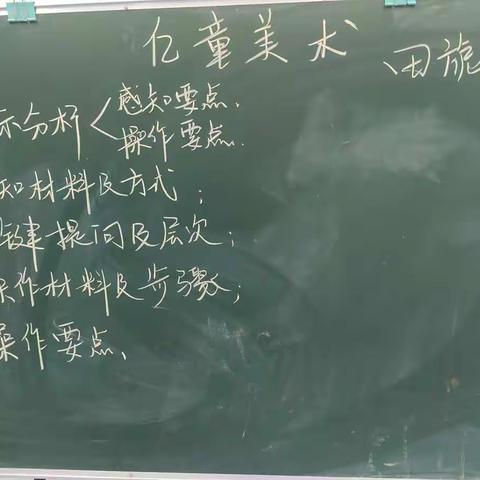 亿童美术
田旎
标分析 < 感知要点、
操作要点.
知材料及方式；
键提问及层次；
操作材料及步骤；
操作要点、